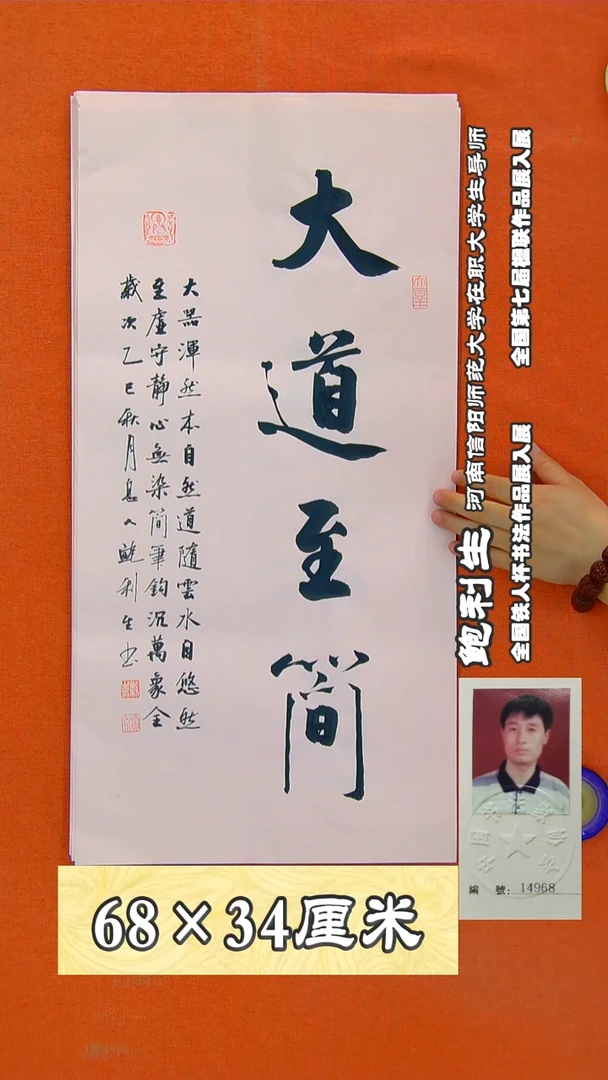 大道至簡
大器渾然本自然道隨雲水自悠然
至虛守靜心無染簡筆鈎沉萬象全
歲次乙巳秋月息人鮑利生书
鲍利生 河南信阳师范大学在职大学生导师
全国铁人杯书法作品展入展 全国第七届楹联作品展入展
編 號: 14968
68×34厘米